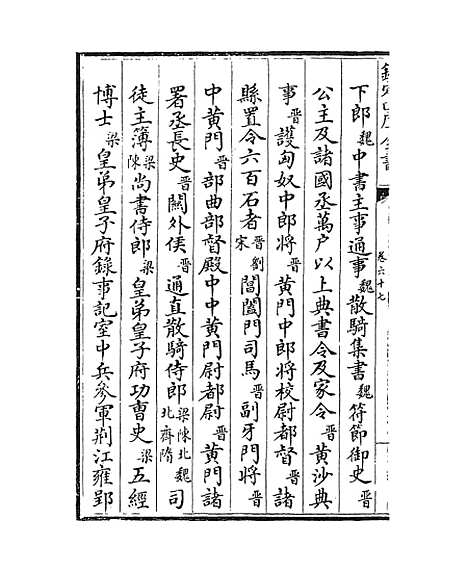 欽定四庫全書
卷六十七
下郎魏中書主事通事魏散騎集書魏符節御史晉
公主及諸國丞萬戸以上典書令及家令晉黃沙典
事晉護匈奴中郎將晉黃門中郎將校尉都督晉諸
縣置令六百石者晉劉宋閶闔門司馬晉副牙門將晉
中黃門晉部曲部督殿中中黃門尉都尉晉黃門諸
署丞長史晉關外侯晉通直散騎侍郎梁陳北魏北齊隋司
徒主簿梁陳尚書侍郎梁皇弟皇子府功曹史梁五經
博士梁皇弟皇子府錄事記室中兵參軍荆江雍郢